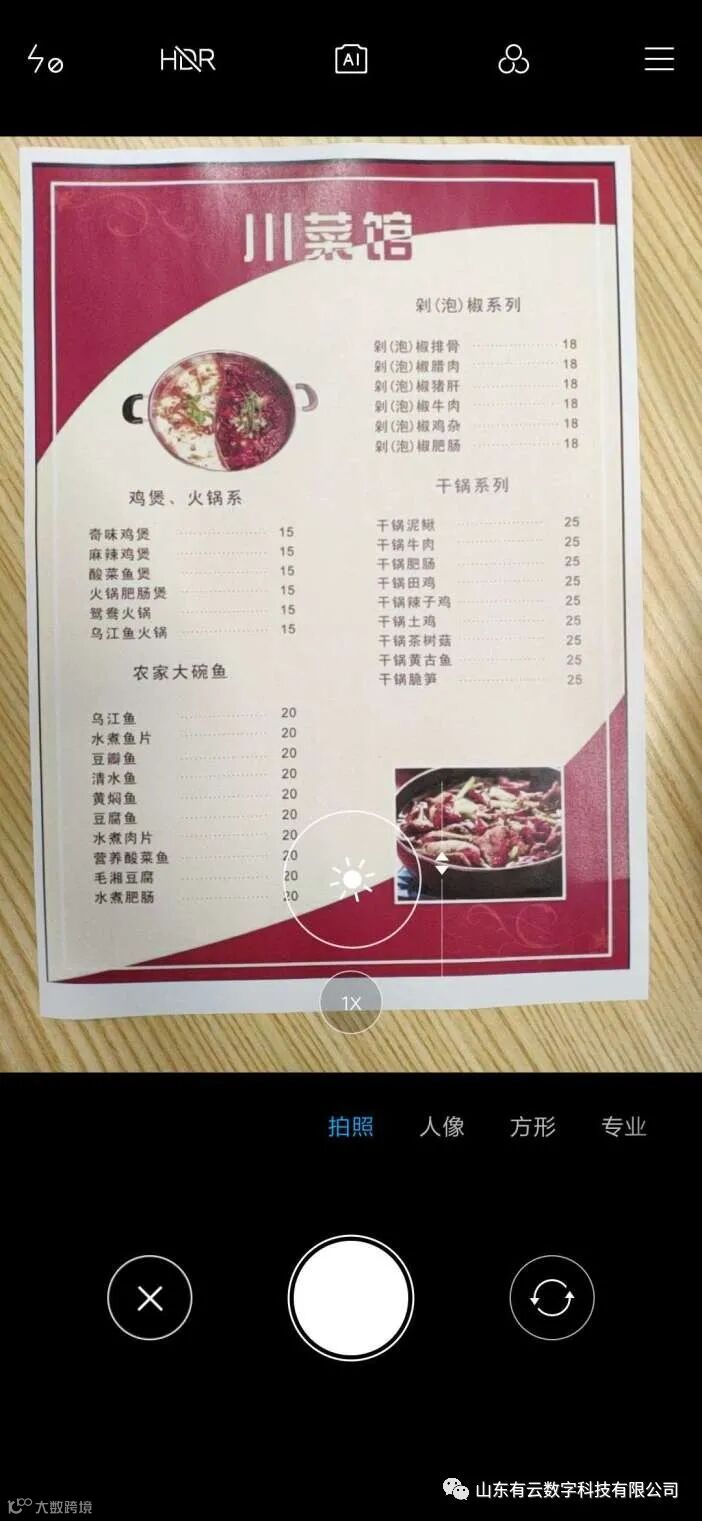 HDR
AI
川菜馆
剁(泡)椒系列
剁(泡)椒排骨 18
剁(泡)椒腊肉 18
剁(泡)椒猪肝 18
剁(泡)椒牛肉 18
剁(泡)椒鸡杂 18
剁(泡)椒肥肠 18
鸡煲、火锅系
奇味鸡煲 15
麻辣鸡煲 15
酸菜鱼煲 15
火锅肥肠煲 15
鸳鸯火锅 15
乌江鱼火锅 15
干锅系列
干锅泥鳅 25
干锅牛肉 25
干锅肥肠 25
干锅田鸡 25
干锅辣子鸡 25
干锅土鸡 25
干锅茶树菇 25
干锅黄古鱼 25
干锅脆笋 25
农家大碗鱼
乌江鱼 20
水煮鱼片 20
豆瓣鱼 20
清水鱼 20
黄焖鱼 20
豆腐鱼 20
水煮肉片 20
营养酸菜鱼 20
毛湘豆腐 20
水煮肥肠 20
1X
拍照 人像 方形 专业
山东有云数字科技有限公司
大数跨境